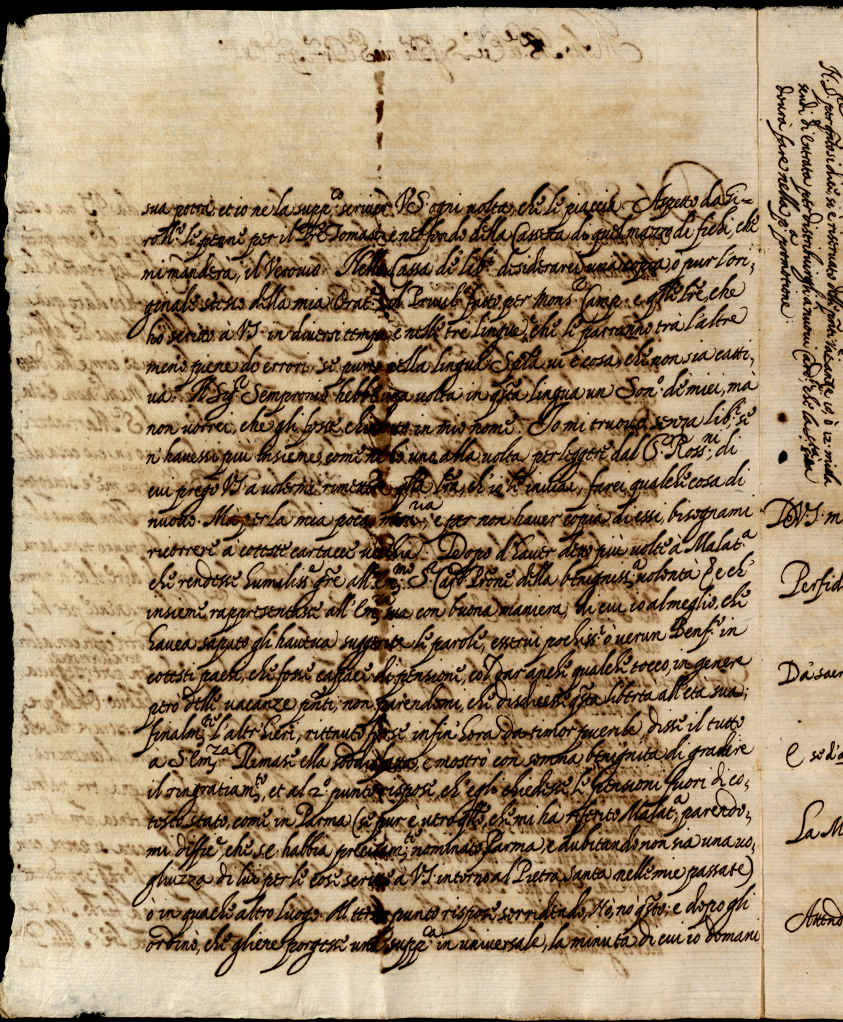 sua potrà, et io ne la supp.co scriver VS. ogni volta, che le piaccia. Aspetto da Gi=
roll.o le penne per il Pre Tomasi, e nel fondo della Cassetta di quel mazzo di fichi, che
mi manderà, il Verovio. Nella Cassa de lib.i desiderarei una copia, o pur l'ori,
ginale stesso della mia Orat.e fatto per Mons.r Camp. e q.lle lre, che
hò scritto à VS. in diversi tempi, e nelle tre lingue, che le parranno trà l'altre
meno piene di errori, se pure nella lingua vi è cosa, che non sia catti,
va. Il Sig.r Sempronio hebbe una volta in q.sta lingua un Son.o de miei, ma
non vorrei, che gli fosse chiesto in mio nome. Io mi truovo senza lib.i, se
n'havessi più insieme, come uno alla volta per leggere dal C. Ross.ni, di
cui prego VS. a volermi rimettere q.sta lra, ch'io le inviai, farei qualche cosa di
nuovo. Ma per la mia poca memoria, e per non haver copia di essi, bisognami
ricorrere a coteste cartacce vecchie. Dopo d'haver detto più volte à Malat.a
che rendesse humiliss.e gre all'Em.mo S.r Card. Prone della benigniss.a volontà, e ch'
insieme rappresentasse all'Em.za sua con buona maniera, di cui io al meglio, che
havea saputo gli haveva suggerite le parole, esservi pochiss.i ò verun Benef.o in
cotesti paesi, che fosse capace di pensione, col dar anche qualche tocco, in genere
però delle vacanze p.nti, non parendomi, che disdicesse q.sta libertà all'età sua;
finalm.te l'altr'hieri, rittenuto forse infin'hora da timor puerile, disse il tutto
a S. Em.za Rimase ella soddisfatta, e mostrò con somma benignità di gradire
il ringratiam.to, et al 2.o punto rispose, ch'egli chiedesse le pensioni fuori di co,
testo stato, come in Parma (se pur è vero q.llo, che mi ha riferito Malat.a, parendo,
mi diffic.e, che se habbia precisam.te nominato Parma, e dubitando non sia una vo,
gliuzza di lui per le cose scritte a VS. intorno al Pietra Santa nelle mie passate)
ò in qualche altro luogo. Al terzo punto rispose sorridendo, No, no q.sto; e dopo gli
ordinò, che gliene porgesse una supp.ca in universale, la minuta di cui io domani
N. S.re per
scudi di entrate per distribuirgli à nuovi Card.li che la S.tà sua
dovrà fare nella p.a promotione.
DVS. m
Perfid
Da saer
E se d'a
La M
Attend